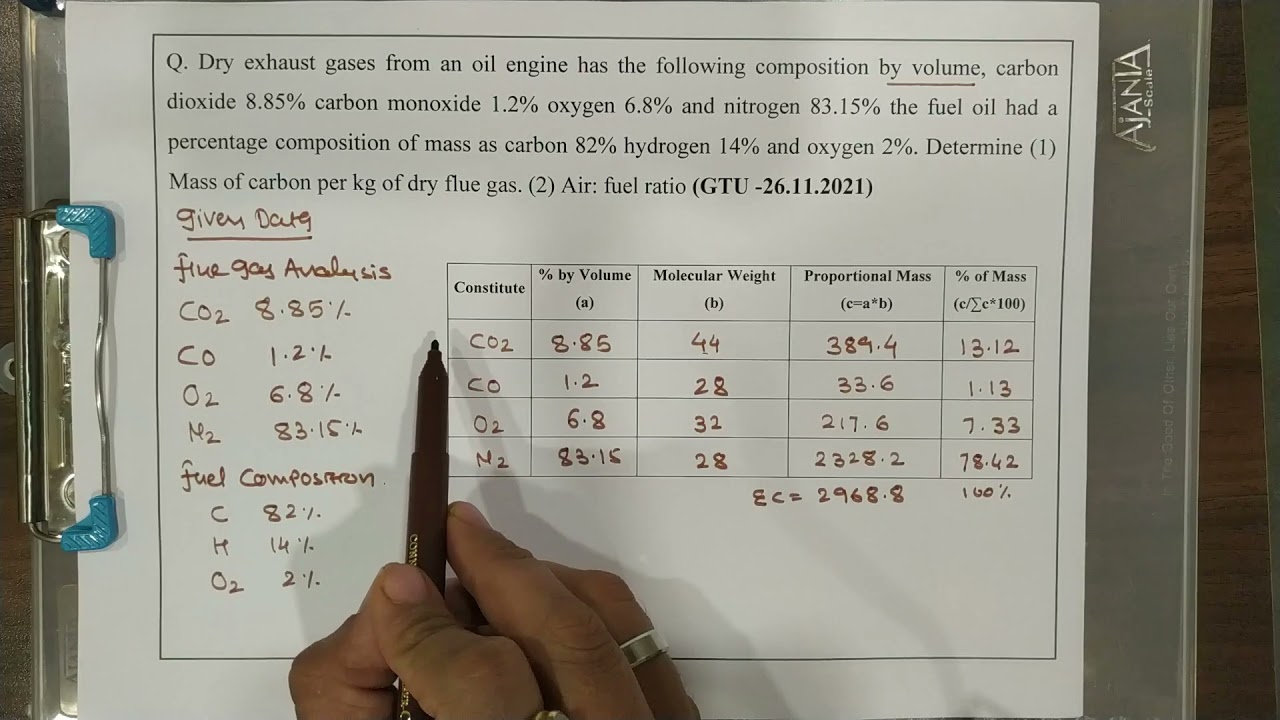 Q. Dry exhaust gases from an oil engine has the following composition by volume, carbon
dioxide 8.85% carbon monoxide 1.2% oxygen 6.8% and nitrogen 83.15% the fuel oil had a
percentage composition of mass as carbon 82% hydrogen 14% and oxygen 2%. Determine (1)
Mass of carbon per kg of dry flue gas. (2) Air: fuel ratio (GTU -26.11.2021)
Given Data
flue gas Analysis
CO2 8.85%
CO 1.2%
O2 6.8%
N2 83.15%
fuel Composition
C 82%
H 14%
O2 2%
Constitute % by Volume (a) Molecular Weight (b) Proportional Mass (c=a*b) % of Mass (c/∑c*100)
CO2 8.85 44 389.4 13.12
CO 1.2 28 33.6 1.13
O2 6.8 32 217.6 7.33
N2 83.15 28 2328.2 78.42
ΣC = 2968.8 100%
AJANTA